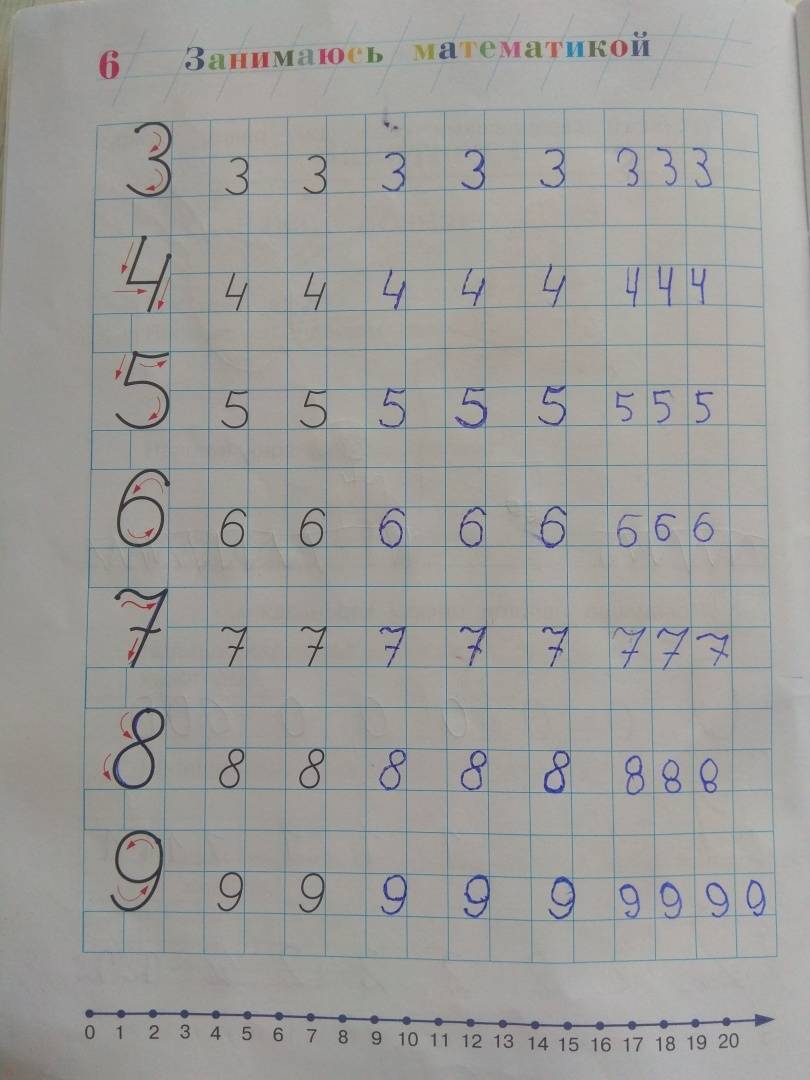 6 Занимаюсь математикой
3 3 3 3 3 3 3 3 3
4 4 4 4 4 4 4 4 4
5 5 5 5 5 5 5 5 5
6 6 6 6 6 6 6 6 6
7 7 7 7 7 7 7 7 7
8 8 8 8 8 8 8 8 8
9 9 9 9 9 9 9 9 9 9
0 1 2 3 4 5 6 7 8 9 10 11 12 13 14 15 16 17 18 19 20